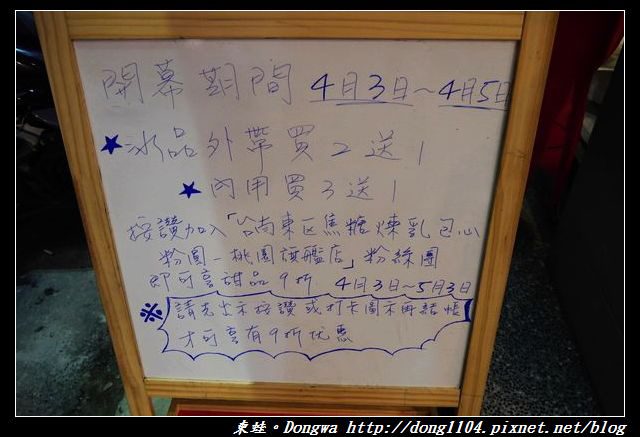 開幕期間 4月3日~4月5日
★冰品外帶買2送1
★內用買3送1
按讚加入「台南東区焦糖煉乳包心
粉圓-桃園旗艦店」粉絲團
即可享甜品9折 4月3日~5月3日
※請先出示按讚或打卡圖示再結帳
才可享有9折优惠
東蛙。Dongwa http://dong1104.pixnet.net/blog